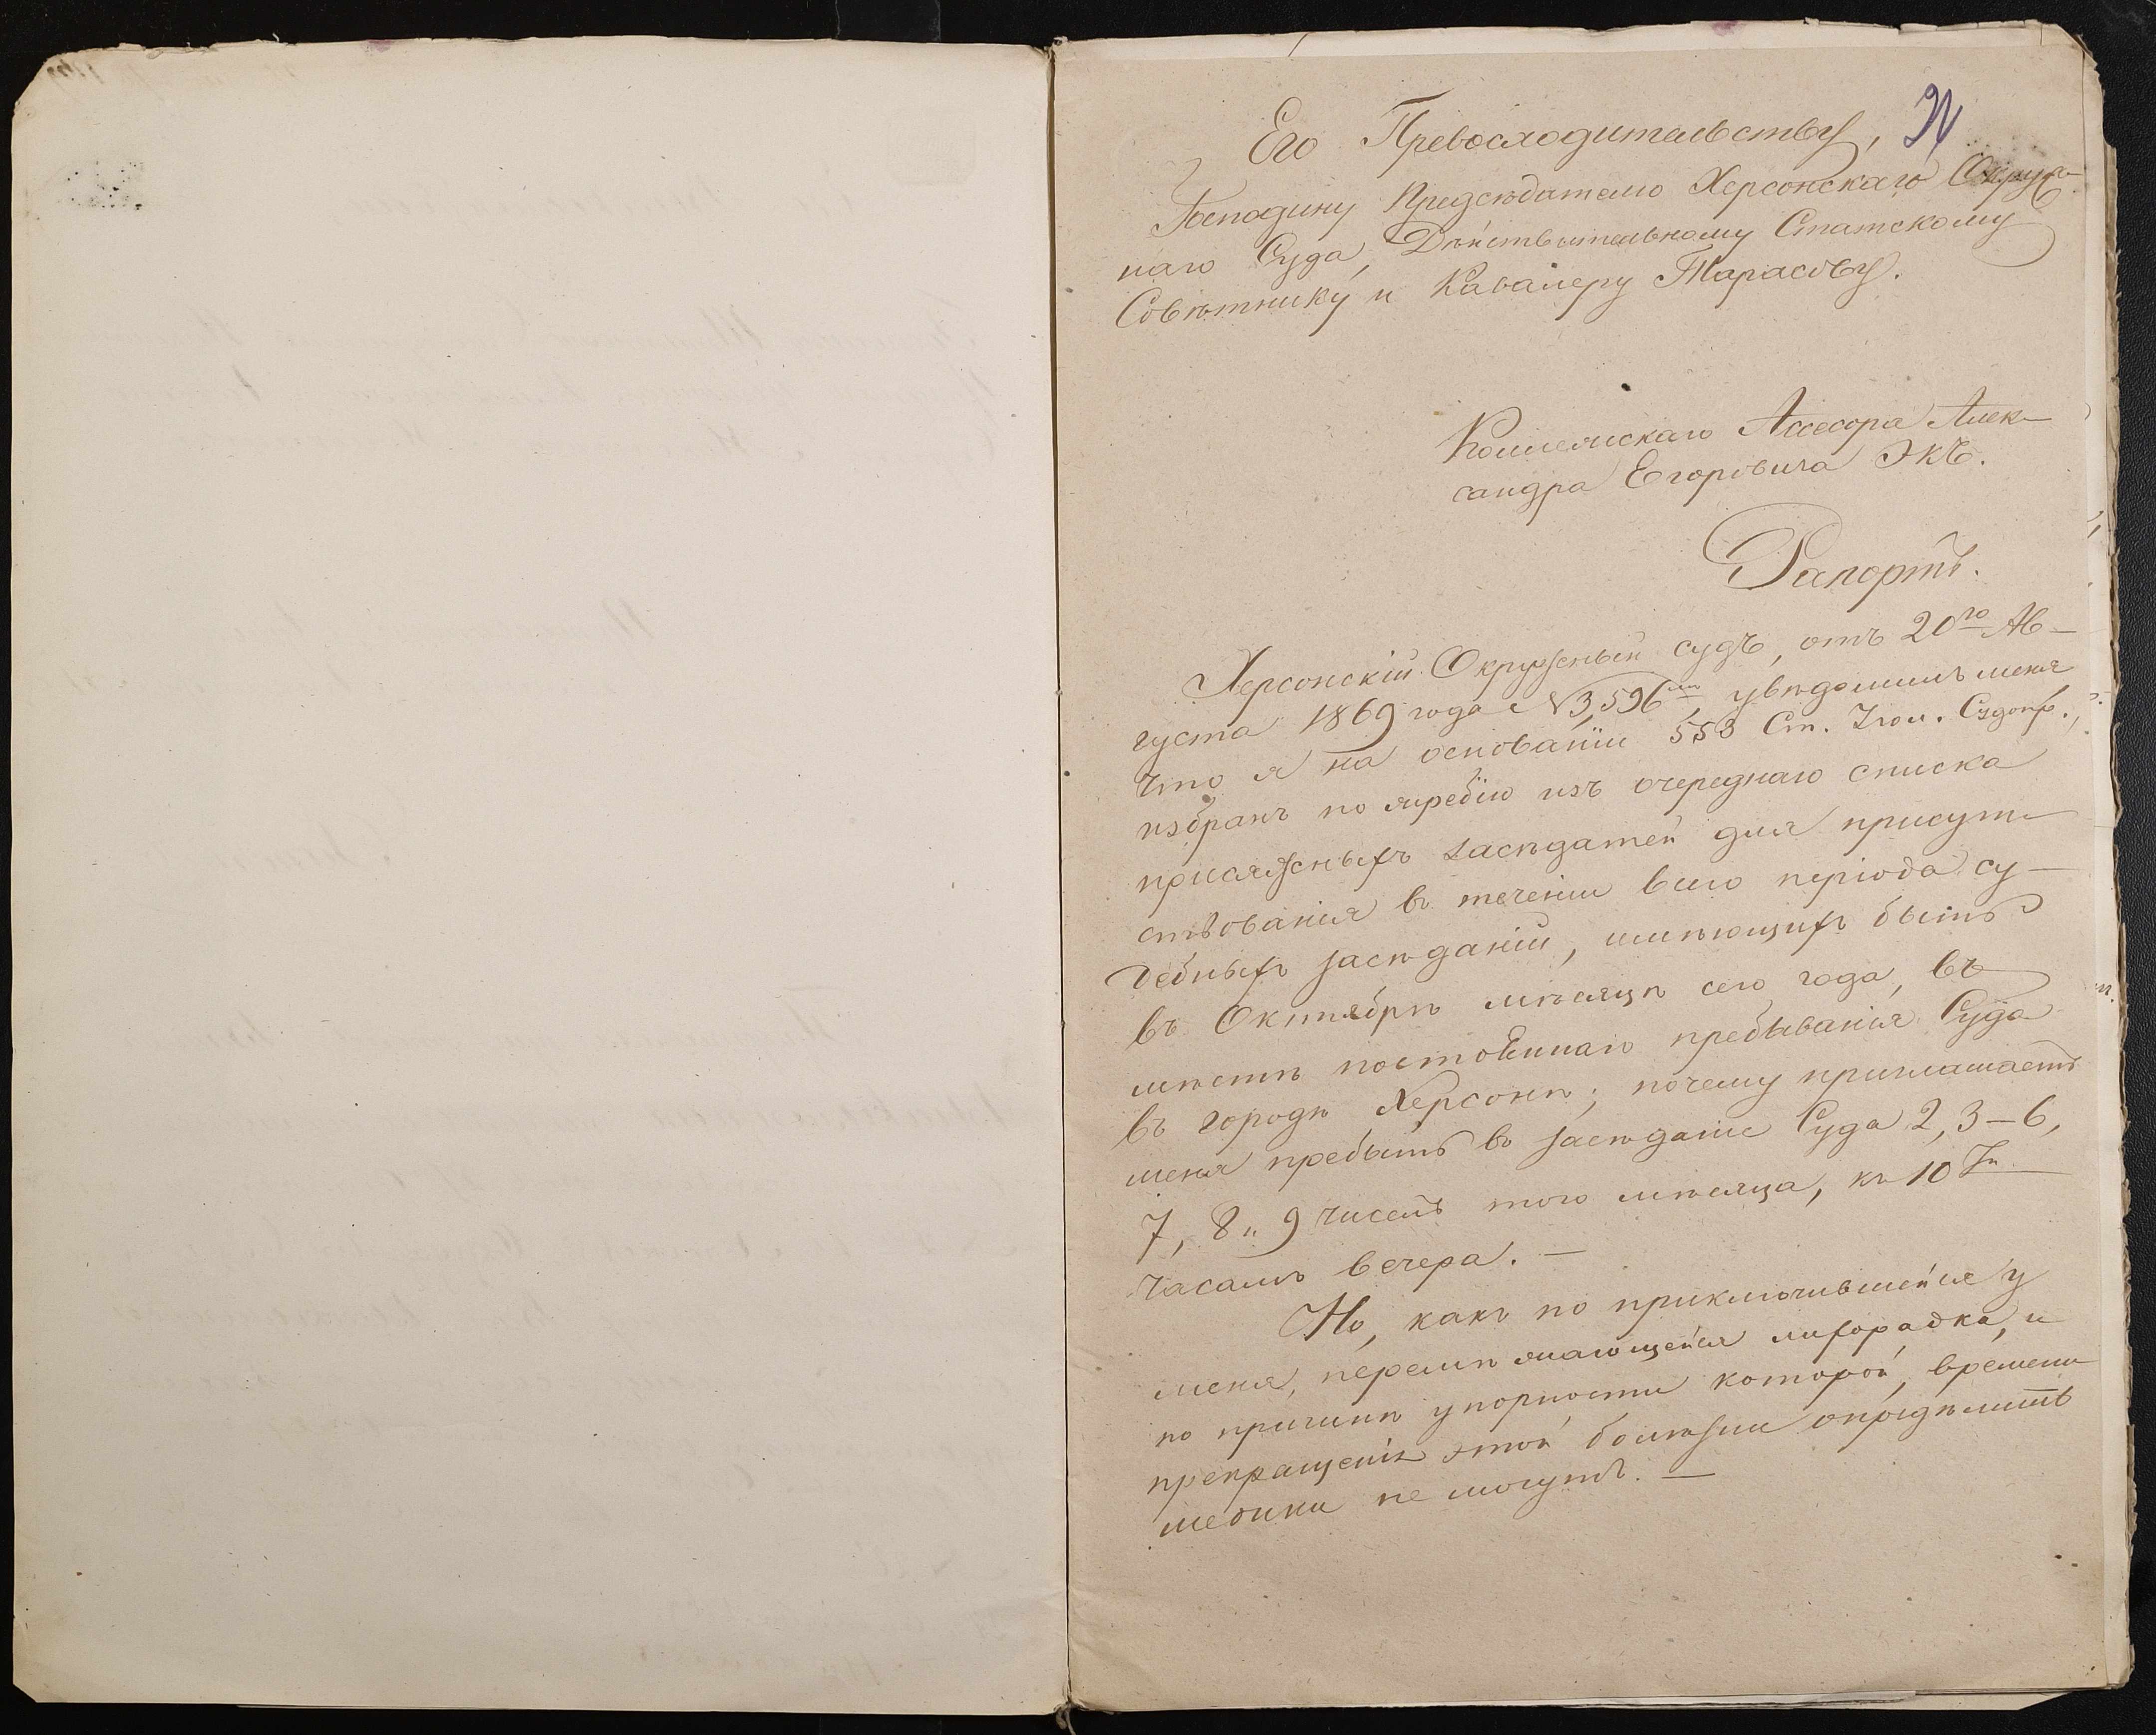 Его Превосходительству,
Господину Предсѣдателю Херсонскаго Окруж-
наго Суда, Дѣйствительному Статскому
Совѣтнику и Кавалеру Тарасову.
Коллежскаго Ассесора Алек-
сандра Егоровича Экъ.
Рапортъ.
Херсонскій Окружный судъ, отъ 20го Ав-
густа 1869 года №3,596мъ, увѣдомилъ меня
что я на основаніи 553 Ст. Угол. Судопр.,
избранъ по жребію изъ очереднаго списка
присяжныхъ засѣдатей для присут-
ствованія въ теченіи всего періода су-
дебныхъ засѣданій, имѣющихъ быть
въ Октябрѣ мѣсяцѣ сего года, въ
мѣстѣ постоеннаго пребыванія Суда
въ городѣ Херсонѣ; почему приглашаетъ
меня пребыть въ засѣданіе Суда 2, 3-6,
7, 8 и 9 чиселъ того мѣсяца, къ 10
часамъ вечера. —
Но, какъ по приключившейся у
меня, перемѣжающейся лихорадка, и
по причинѣ упорности которой, времени
прекращенія этой болѣзни опредѣлить
медики не могутъ. —